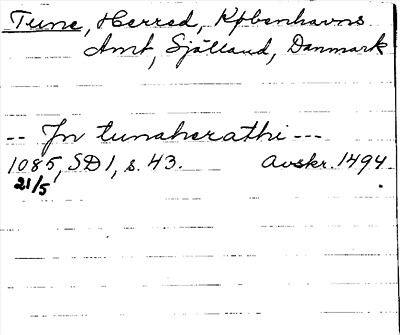 Tune, Herred, Københavns
Amt, Sjælland, Danmark
-- Jn tunaherathi ---
1085, SD1, s. 43. Avskr. 1494.
21/5